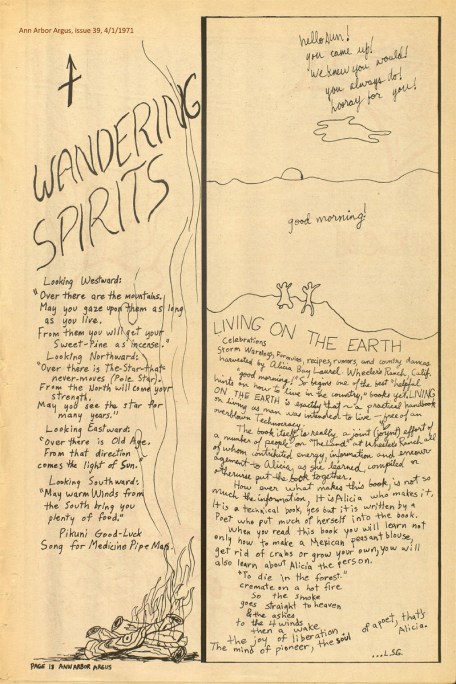 Ann Arbor Argus, Issue 39, 4/1/1971
WANDERING
SPIRITS
Looking Westward:
"Over there are the mountains.
May you gaze upon them as long
as you live.
From them you will get your
Sweet-Pine as incense."
Looking Northward:
"Over there is The-Star-that
never-moves (Pole Star).
From the North will come your
strength.
May you see the star for
many years."
Looking Eastward:
"Over there is Old Age.
From that direction
comes the light of Sun.
Looking Southward:
"May warm Winds from
the South bring you
plenty of food."
Pikuni Good-Luck
Song for Medicine Pipe Man.
PAGE 18 ANN ARBOR ARGUS
hello sun!
you came up!
we knew you would!
you always do!
hooray for you!
good morning!
LIVING ON THE EARTH
Celebrations
Storm Warnings, Formulas, recipes, rumors, and country dances
harvested by Alicia Bay Laurel. Wheeler's Ranch, Calif.
good morning!" So begins one of the best "helpful
hints on how to live in the country," books yet. LIVING
ON THE EARTH is exactly that – a practical handbook
on living as man was intended to live – free of an
overblown Technocracy.
The book itself is really a joint (joynt) effort of
a number of people on "The Land" at Wheelers Ranch all
of whom contributed energy, information and encour
agement to Alicia, as she learned, compiled or
otherwise put the book together.
How ever what makes this book is not so
much the information. It is Alicia who makes it,
It is a technical book, yes but it is written by a
Poet who put much of herself into the book.
When you read this book you will learn not
only how to make a Mexican peasant blouse,
get rid of crabs or grow your own, you will
also learn about Alicia the person.
"To die in the forest."
cremate on a hot fire
so the smoke
goes straight to heaven
& the ashes
to the 4 winds
then a wake
the joy of liberation
The mind of pioneer, the soul of a poet, that's
Alicia.
...L.S.G.